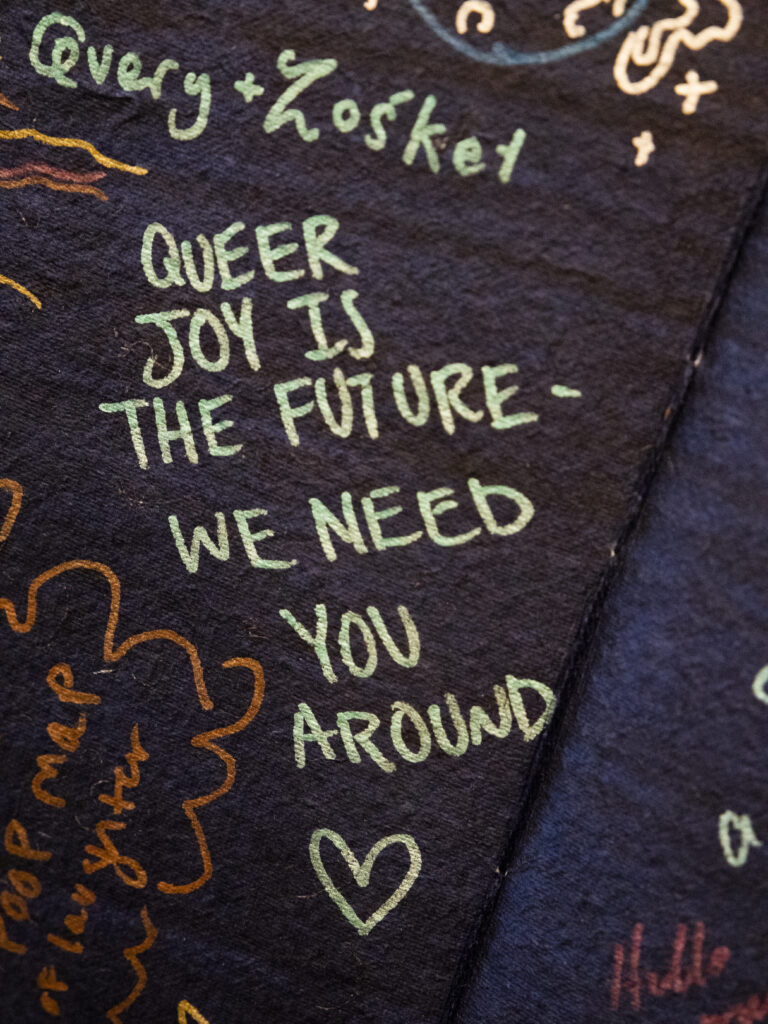 Query + Zošket
QUEER
JOY IS
THE FUTURE -
WE NEED
YOU
AROUND
POOP MAP
of laughter
a
Hello